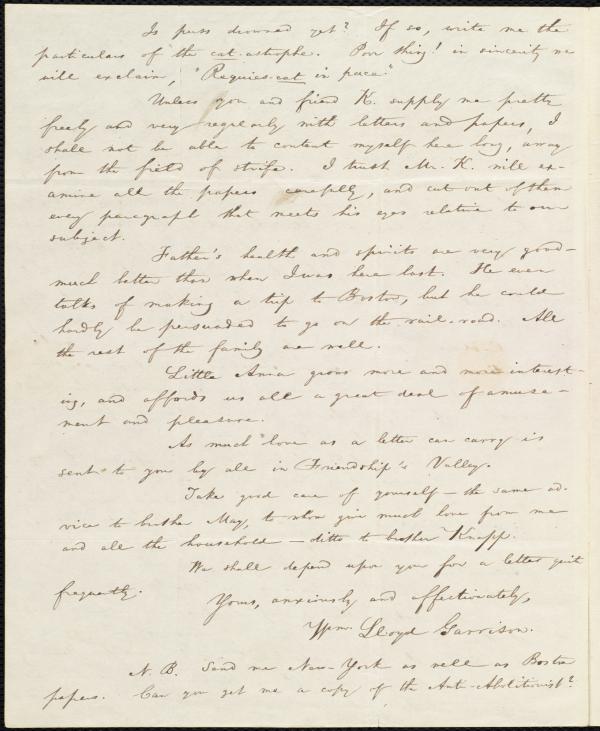 Is puss drowned yet? If so, write me the
particulars of the cat-astrophe. Poor thing! in sincerity we
will exclaim, "Requies-cat in pace."
Unless you and friend K. supply me pretty
freely and very regularly with letters and papers, I
shall not be able to content myself here long, away
from the field of strife. I trust Mr. K. will ex-
amine all the papers carefully, and cut out of them
every paragraph that meets his eyes relative to our
subject.
Father's health and spirits are very good—
much better than when I was here last. He even
talks of making a trip to Boston, but he could
hardly be persuaded to go on the rail-road. All
the rest of the family are well.
Little Anna grows more and more interest-
ing, and affords us all a great deal of amuse-
ment and pleasure.
As much love as a letter can carry is
sent to you by all in Friendship's Valley.
Take good care of yourself — the same ad-
vice to brother May, to whom give much love from me
and all the household — ditto to brother Knapp.
We shall depend upon you for a letter quite
frequently.
Yours, anxiously and affectionately,
Wm. Lloyd Garrison.
N. B. Send me New-York as well as Boston
papers. Can you get me a copy of the Anti-Abolitionist?